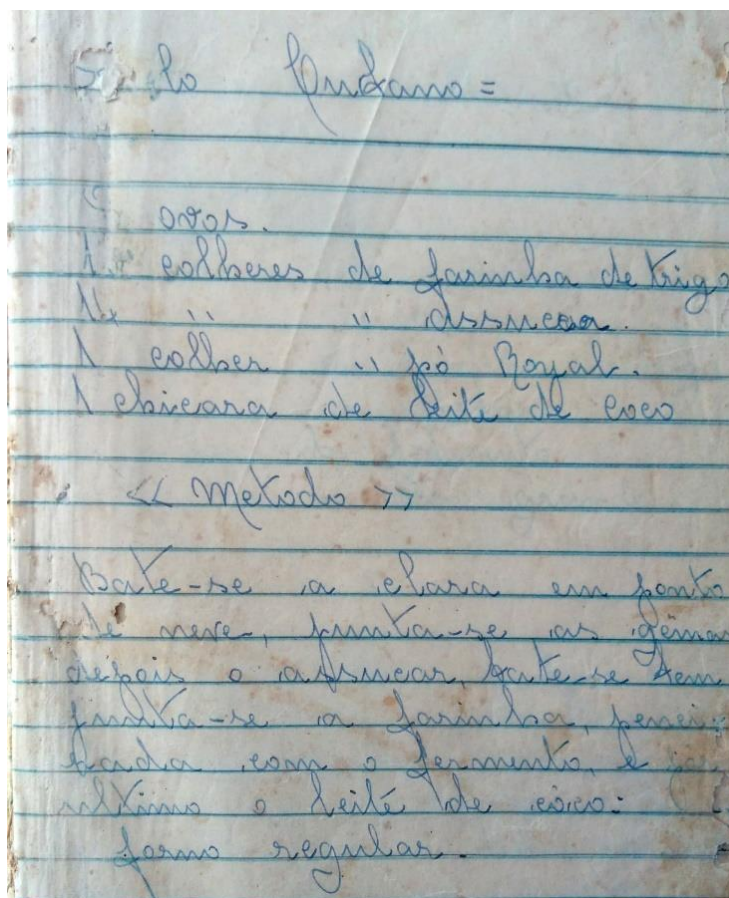 lo =
ovos.
colheres de farinha de trigo
" " assucar.
1 colher " pó Royal.
1 chicara de leite de coco
<< Metodo >>
Bate-se a clara em ponto
de neve, junta-se as gêmas
depois o assucar, bate-se bem
junta-se a farinha, penei-
rada com o fermento, e
ultimo o leite de côco:
forno regular.